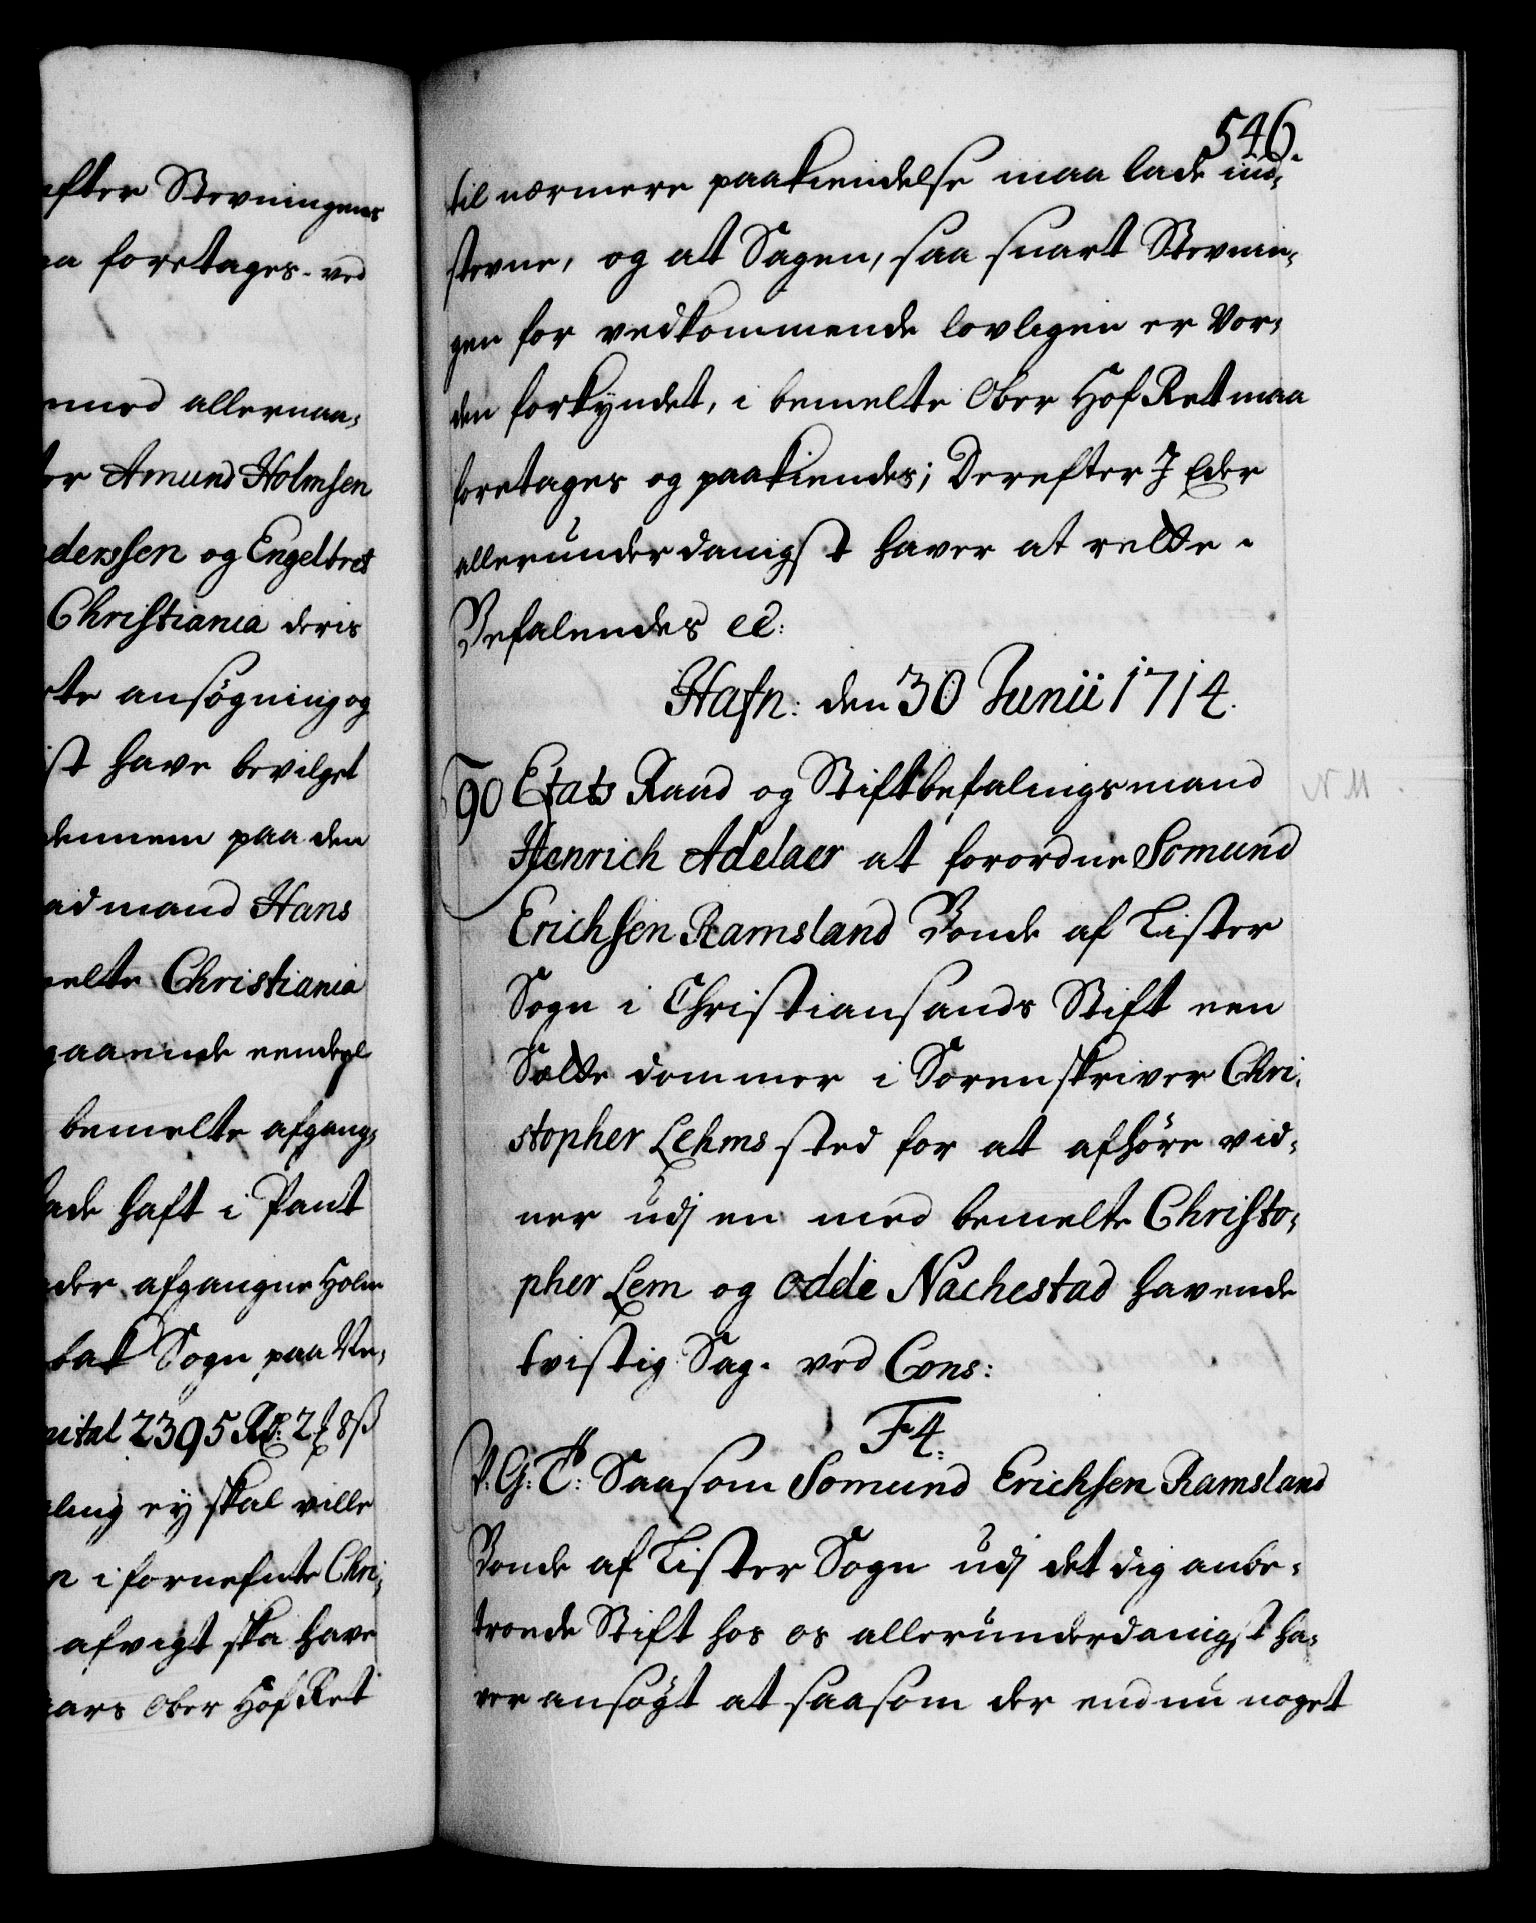 after Stevningens
foretages. ved
med allernaa-
Amund Holmsen
derssen og Engelbret
Christiania deris
ansøgning og
have bevilget
dennem paa den
mand Hans
melte Christiania
gaaende
bemelte afgang-
hafft i Pant
der afgangne Holm
Sogn paa
Capital 2395 Rd: 2 8 ß
ey skal ville
i fornefnte Chri-
afvigt ska have
aars Ober Hof Ret
546.
til nærmere paakiendelse maa lade ind-
stevne, og at Sagen, saa snart Stevnin-
gen for vedkommende lovligen er vor-
den forkyndet, i bemelte Ober Hof Ret maa
foretages og paakiendes; Derefter I Eder
allerunderdanigst haver at rette.
Befalendes etc:
Hafn: den 30 Junii 1714.
90 Etats Raad og Stiftbefalingsmand N M
Henrich Adelaer at forordne Somund
Erichsen Ramsland Bonde af Lister
Sogn i Christiansands Stift een
Sætte dommer i Sorenskriver Chri-
stopher Lehms sted for at afhöre vid-
ner udj en med bemelte Christo-
pher Lem og Odde Nachestad havende
tvistig Sag. ved Cons:
F4.
V: G: T: Saasom Somund Erichsen Ramsland
Bonde af Lister Sogn udj det dig anbe-
troede Stift hos os allerunderdanigst ha-
ver ansøgt at saasom der endnu noget